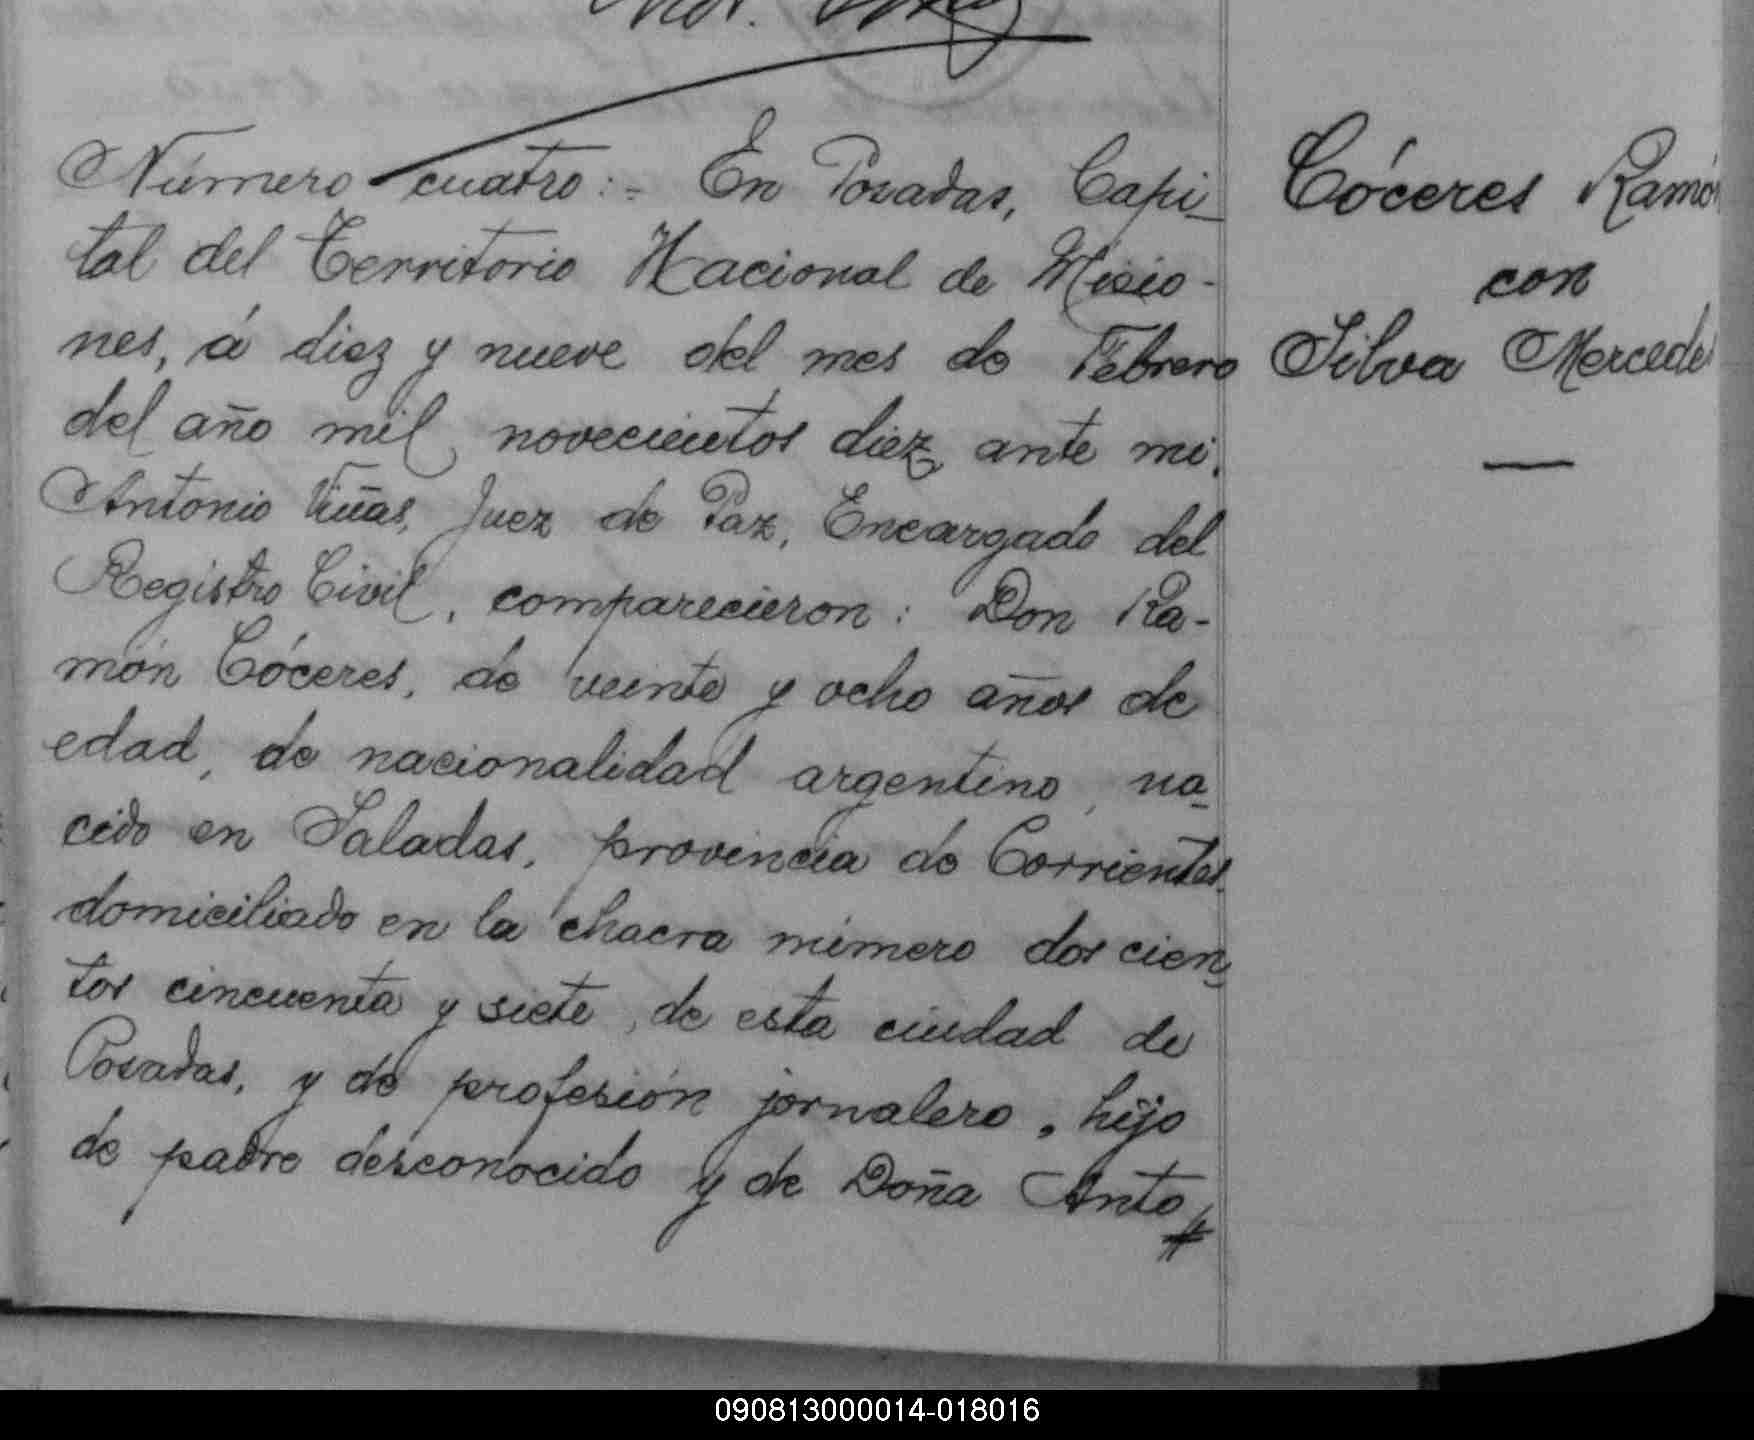 Número cuatro:- En Posadas, Capi-
tal del Territorio Nacional de Misio-
nes, á diez y nueve del mes de Febrero
del año mil novecientos diez ante mi,
Antonio Viñas, Juez de Paz, Encargado del
Registro Civil, comparecieron: Don Ra-
món Cóceres, de veinte y ocho años de
edad, de nacionalidad argentino, na-
cido en Saladas, provincia de Corrientes,
domiciliado en la chacra número doscien-
tos cincuenta y siete, de esta ciudad de
Posadas, y de profesión jornalero, hijo
de padre desconocido y de Doña Anto
Cóceres Ramón
con
Silva Mercedes
090813000014-018016